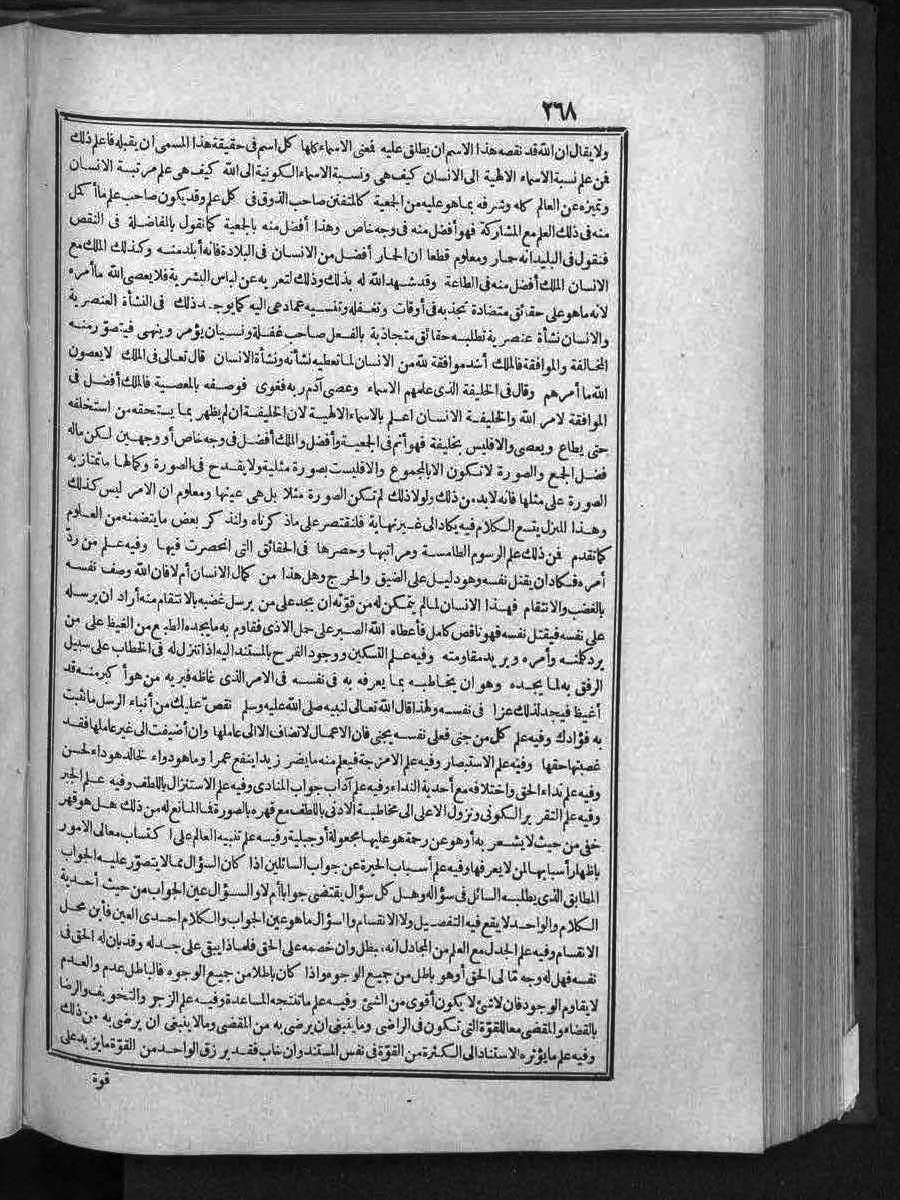 ٢٦٨
ولا يقال ان الله قد نقصه هذا الاسم ان يطلق عليه فعنى الاسماء كلها كل اسم فى حقيقة هذا المسمى ان يقبله فاعلم ذلك
فمن علم نسبة الاسماء الالهية الى الانسان كيف هى ونسبة الاسماء الكونية الى الله كيف هى علم مرتبة الانسان
وتميزه عن العالم كله وشرفه بما هو عليه من الجمعية كالمتفنن صاحب الذوق فى كل علم وقد يكون صاحب علم ما أكمل
منه فى ذلك العلم مع المشاركة فهو أفضل منه فى وجه خاص وهذا أفضل منه بالجمعية كما نقول بالمفاضلة فى النقص
فنقول فى البليد انه حمار ومعلوم قطعا ان الحمار أفضل من الانسان فى البلادة فانه أبلد منه وكذلك الملك مع
الانسان الملك أفضل منه فى الطاعة وقد شهد الله له بذلك وذلك لتعريه عن لباس البشرية فلا يعصى الله ما أمره
لانه ما هو على حقائق متضادة تجذبه فى أوقات وتغفله وتنسيه عما دعى اليه كما يوجد ذلك فى النشأة العنصرية
والانسان نشأة عنصرية تطلبه حقائق متجاذبة بالفعل صاحب غفلة ونسيان يؤمر وينهى فيتصوّر منه
المخالفة والموافقة فالملك أشد موافقة لله من الانسان لما تعطيه نشأته ونشأة الانسان قال تعالى فى الملك لا يعصون
الله ما أمرهم وقال فى الخليفة الذى علمهم الاسماء وعصى آدم ربه فغوى فوصفه بالمعصية فالملك أفضل فى
الموافقة لامر الله والخليفة الانسان اعلم بالاسماء الالهية لان الخليفة ان لم يظهر بما يستحقه من استخلفه
حتى يطاع ويعصى والا فليس بخليفة فهو أتم فى الجمعية وأفضل والملك أفضل فى وجه خاص أو وجهين لكن ماله
فضل الجمع والصورة لا تكون الا بالمجموع والا فليست بصورة مثلية ولا يقدح فى الصورة وكمالها ما تمتاز به
الصورة على مثلها فانه لا بد من ذلك ولولا ذلك لم تكن الصورة مثلا بل هى عينها ومعلوم ان الامر ليس كذلك
وهذا المنزل يتسع الكلام فيه يكاد الى غير نهاية فلنقتصر على ما ذكرناه ولنذكر بعض ما يتضمنه من العلوم
كما تقدم فمن ذلك علم الرسوم الطامسة ومراتبها وحصرها فى الحقائق التى انحصرت فيها وفيه علم من ردّ
أمره فكاد ان يقتل نفسه وهو دليل على الضيق والحرج وهل هذا من كمال الانسان أم لا فان الله وصف نفسه
بالغضب والانتقام فهذا الانسان لما لم يتمكن له من قوّته ان يجد على من يرسل غضبه بالانتقام منه أراد ان يرسله
على نفسه فيقتل نفسه فهو ناقص كامل فأعطاه الله الصبر على حمل الاذى فقاوم به ما يجده الطبع من الغيظ على من
يرد كلمته وأمره ويريد مقاومته وفيه علم التسكين ووجود الفرح بالمستند اليه اذا تنزل له فى الخطاب على سبيل
الرفق به لما يجده وهو ان يخاطبه بما يعرفه به فى نفسه فى الامر الذى غاظه فيريه من هو أكبر منه قد
أغيظ فيجد لذلك عزا فى نفسه ولهذا قال الله تعالى لنبيه صلى الله عليه وسلم نقصّ عليك من أنباء الرسل ما نثبت
به فؤادك وفيه علم كل من جنى فعلى نفسه يجنى فان الاعمال لا تضاف الا الى عاملها وان أضيفت الى غير عاملها فقد
غصبتها حقها وفيه علم الاستبصار وفيه علم الامزجة فيعلم منه ما يضر زيدا ينفع عمرا وما هو دواء لخالد هو داء لحسن
وفيه علم نداء الحق واختلافه مع أحدية النداء وفيه علم آداب جواب المنادى وفيه علم الاستنزال باللطف وفيه علم الجبر
وفيه علم التقرير الكونى ونزول الاعلى الى مخاطبة الادنى باللطف مع قهره بالصورة فما المانع له من ذلك هل هو قهر
خفى من حيث لا يشعر به أو هو عن رحمة هو عليها مجعولة أو جبلية وفيه علم تنبيه العالم على اكتساب معالى الامور
باظهار أسبابها لمن لا يعرفها وفيه علم أسباب الحيرة عن جواب السائلين اذا كان السؤال مما لا يتصوّر عليه الجواب
المطابق الذى يطلبه السائل فى سؤاله وهل كل سؤال يقتضى جوابا أم لا والسؤال عين الجواب من حيث أحدية
الكلام والواحد لا يقع فيه التفصيل ولا الانقسام والسؤال ما هو عين الجواب والكلام احدى العين فأين محل
الانقسام وفيه علم الجدل مع العلم من المجادل انه مبطل وان خصمه على الحق فلماذا يبقى على جدله وقد بان له الحق فى
نفسه فهل له وجه ما الى الحق أو هو باطل من جميع الوجوه واذا كان باطلا من جميع الوجوه فالباطل عدم والعدم
لا يقاوم الوجود فان لا شئ لا يكون أقوى من الشئ وفيه علم ما تنتجه المساعدة وفيه علم الزجر والتخويف والرضا
بالقضاء والمقضى معا للقوّة التى تكون فى الراضى وما ينبغى ان يرضى به من المقضى وما لا ينبغى ان يرضى به من ذلك
وفيه علم ما يؤثره الاستناد الى الكثرة من القوّة فى نفس المستند وان خاب فقد يرزق الواحد من القوّة ما يزيد على
قوة